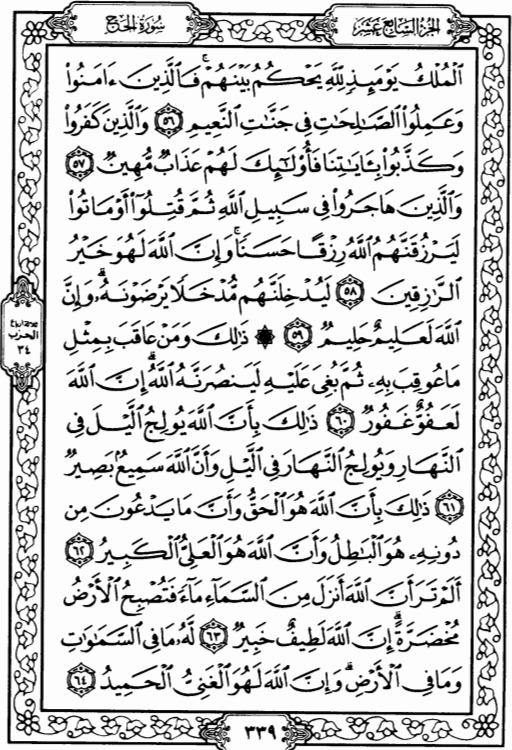 سُورَةُ الحَجِّ
الجُزْءُ السَّابِعَ عَشَرَ
ٱلْمُلْكُ يَوْمَئِذٍ لِّلَّهِ يَحْكُمُ بَيْنَهُمْ ۚ فَٱلَّذِينَ ءَامَنُوا۟
وَعَمِلُوا۟ ٱلصَّٰلِحَٰتِ فِى جَنَّٰتِ ٱلنَّعِيمِ ٥٦ وَٱلَّذِينَ كَفَرُوا۟
وَكَذَّبُوا۟ بِـَٔايَٰتِنَا فَأُو۟لَٰٓئِكَ لَهُمْ عَذَابٌ مُّهِينٌ ٥٧
وَٱلَّذِينَ هَاجَرُوا۟ فِى سَبِيلِ ٱللَّهِ ثُمَّ قُتِلُوٓا۟ أَوْ مَاتُوا۟
لَيَرْزُقَنَّهُمُ ٱللَّهُ رِزْقًا حَسَنًا ۚ وَإِنَّ ٱللَّهَ لَهُوَ خَيْرُ
ٱلرَّٰزِقِينَ ٥٨ لَيُدْخِلَنَّهُم مُّدْخَلًا يَرْضَوْنَهُۥ ۗ وَإِنَّ
ٱللَّهَ لَعَلِيمٌ حَلِيمٌ ٥٩ ۞ ذَٰلِكَ وَمَنْ عَاقَبَ بِمِثْلِ
مَا عُوقِبَ بِهِۦ ثُمَّ بُغِىَ عَلَيْهِ لَيَنصُرَنَّهُ ٱللَّهُ ۗ إِنَّ ٱللَّهَ
لَعَفُوٌّ غَفُورٌ ٦٠ ذَٰلِكَ بِأَنَّ ٱللَّهَ يُولِجُ ٱلَّيْلَ فِى
ٱلنَّهَارِ وَيُولِجُ ٱلنَّهَارَ فِى ٱلَّيْلِ وَأَنَّ ٱللَّهَ سَمِيعٌۢ بَصِيرٌ
٦١ ذَٰلِكَ بِأَنَّ ٱللَّهَ هُوَ ٱلْحَقُّ وَأَنَّ مَا يَدْعُونَ مِن
دُونِهِۦ هُوَ ٱلْبَٰطِلُ وَأَنَّ ٱللَّهَ هُوَ ٱلْعَلِىُّ ٱلْكَبِيرُ ٦٢
أَلَمْ تَرَ أَنَّ ٱللَّهَ أَنزَلَ مِنَ ٱلسَّمَآءِ مَآءً فَتُصْبِحُ ٱلْأَرْضُ
مُخْضَرَّةً ۗ إِنَّ ٱللَّهَ لَطِيفٌ خَبِيرٌ ٦٣ لَّهُۥ مَا فِى ٱلسَّمَٰوَٰتِ
وَمَا فِى ٱلْأَرْضِ ۗ وَإِنَّ ٱللَّهَ لَهُوَ ٱلْغَنِىُّ ٱلْحَمِيدُ ٦٤
الحزب
٣٤
٣٣٩